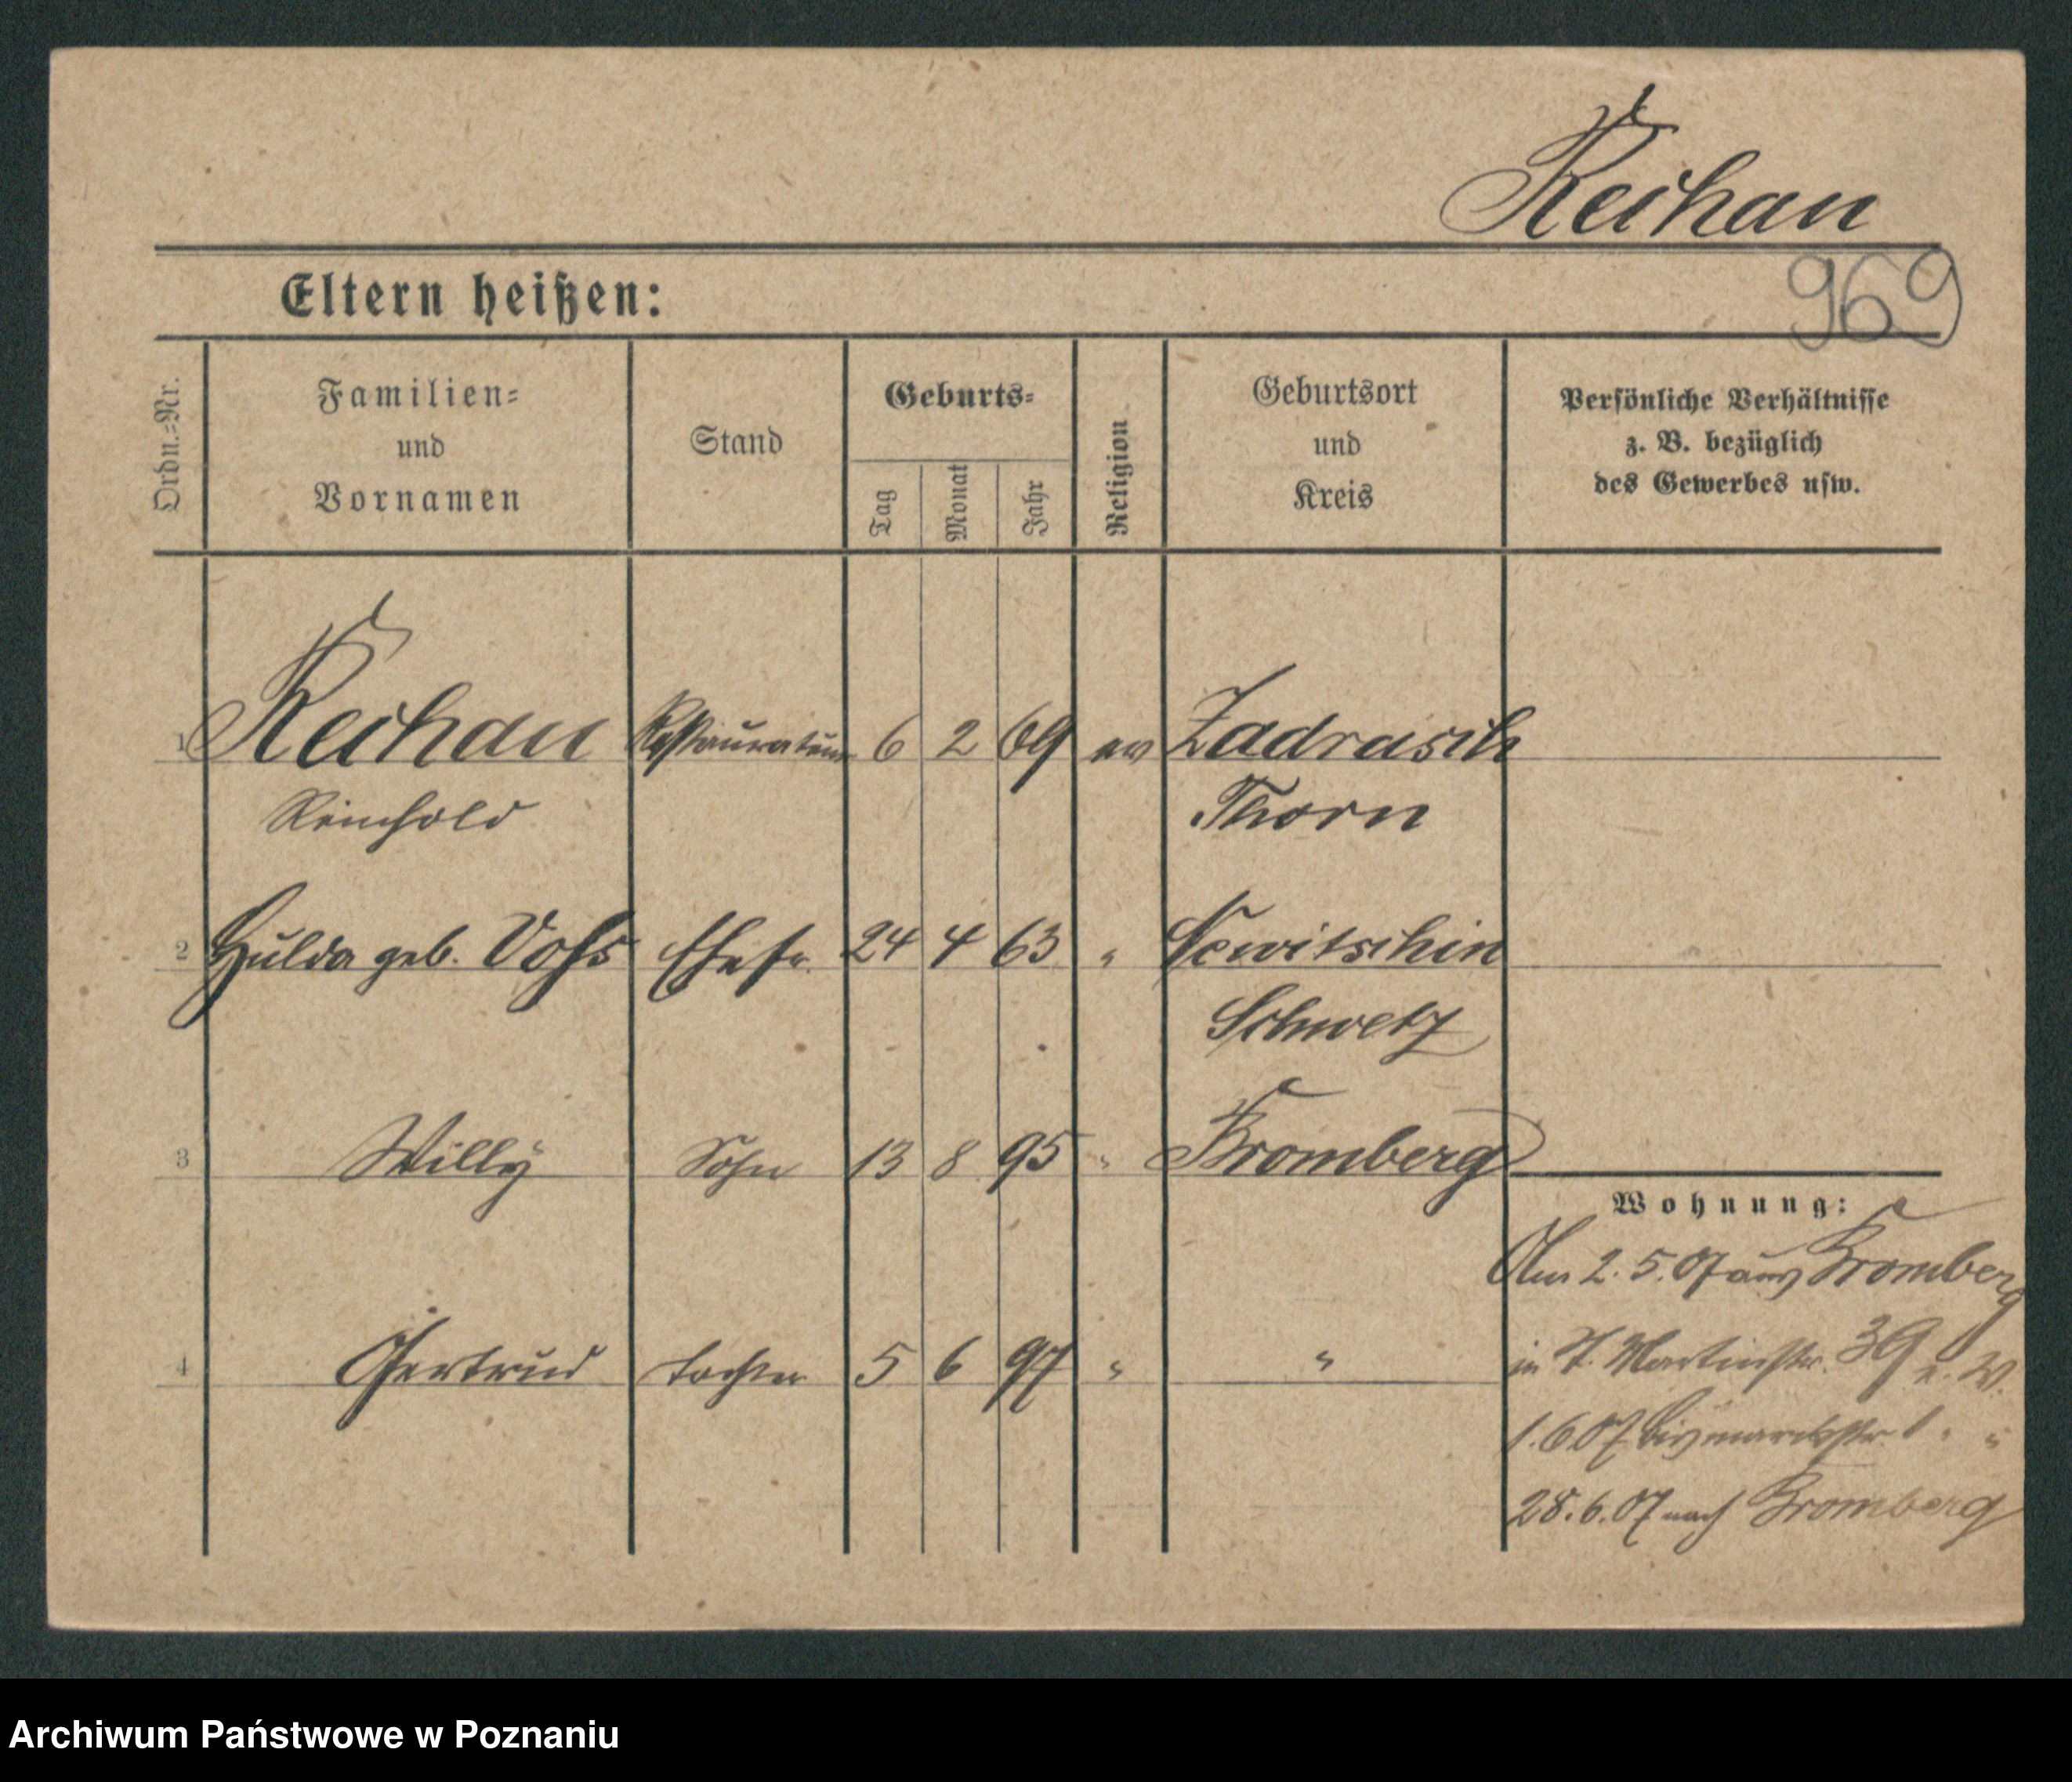 Reihan
969
Eltern heißen:
Ordn.=Nr.
Familien=
und
Vornamen
Stand
Geburts=
Tag
Monat
Jahr
Religion
Geburtsort
und
Kreis
Persönliche Verhältnisse
z. B. bezüglich
des Gewerbes usw.
1 Reihan Restaurateur 6 2 69 ev Zadrasch
Reinhold Thorn
2 Hulda geb. Vohs Ehefr. 24 4 63 " Newitschin
Schwetz
3 Willy Sohn 13 8 95 " Bromberg
Wohnung:
Am 2.5.07 aus Bromberg
4 Gertrud Tochter 5 6 97 " "
in St. Martinstr. 39 b. W.
1.6.07 Bismarckstr 1 " "
28.6.07 nach Bromberg
Archiwum Państwowe w Poznaniu